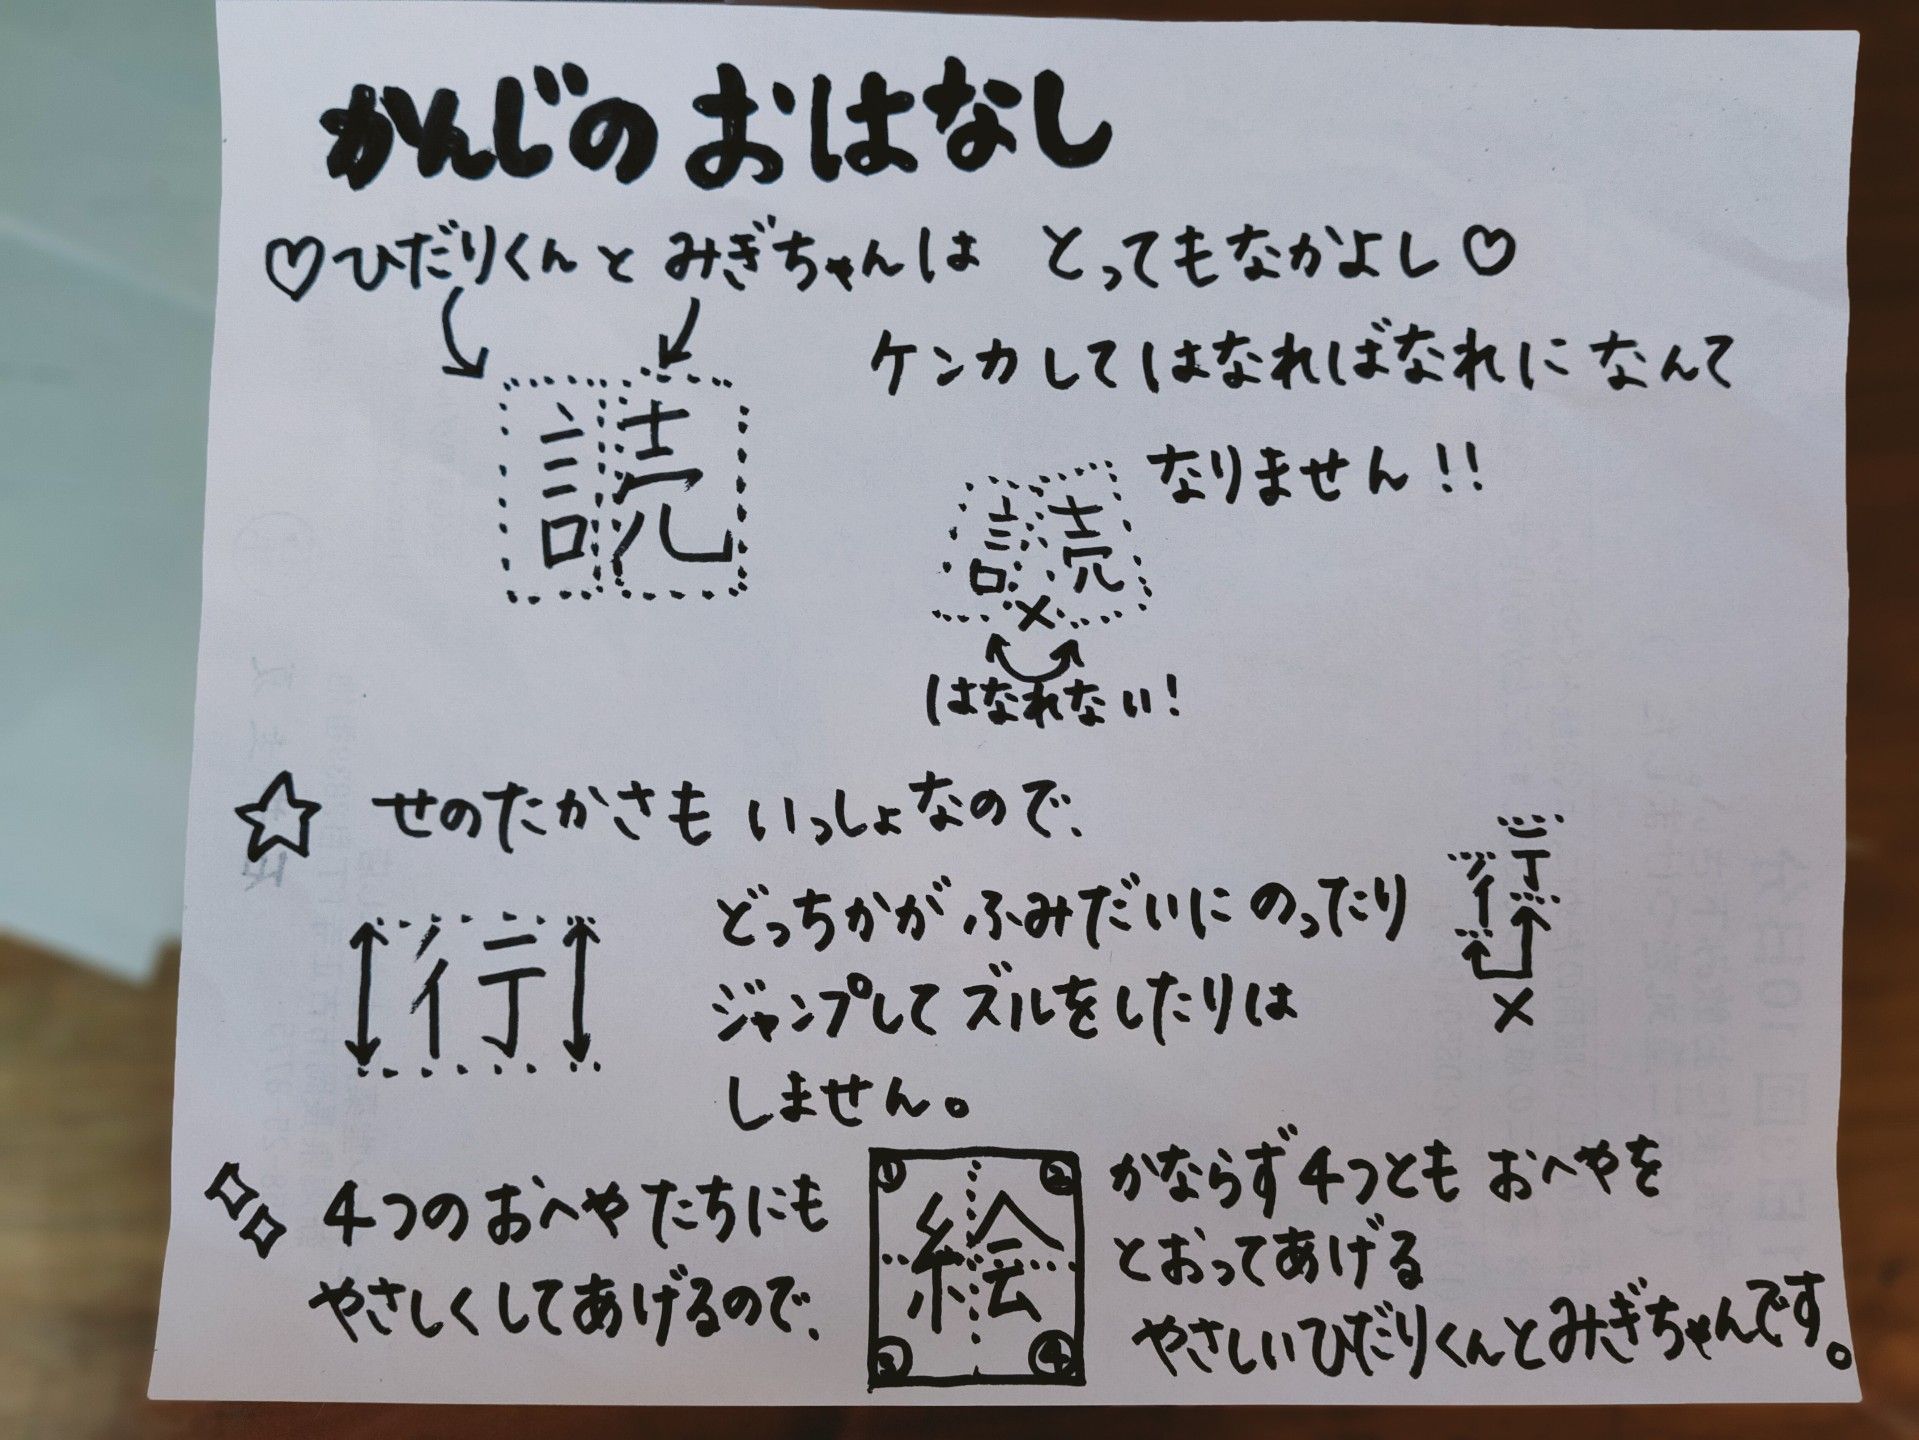 かんじの おはなし
♡ひだりくんと みぎちゃんは とってもなかよし♡
ケンカしてはなればなれに なんて
なりません!!
読
読
×
はなれない!
☆ せのたかさも いっしょなので、
行
どっちかが ふみだいに のったり
ジャンプして ズルをしたりは
しません。
行
×
4つの おへや たちにも
やさしくしてあげるので、
① ②
絵
③ ④
かならず 4つとも おへやを
とおってあげる
やさしいひだりくんとみぎちゃんです。